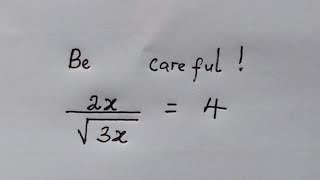 Be careful!
2x
√3x = 4